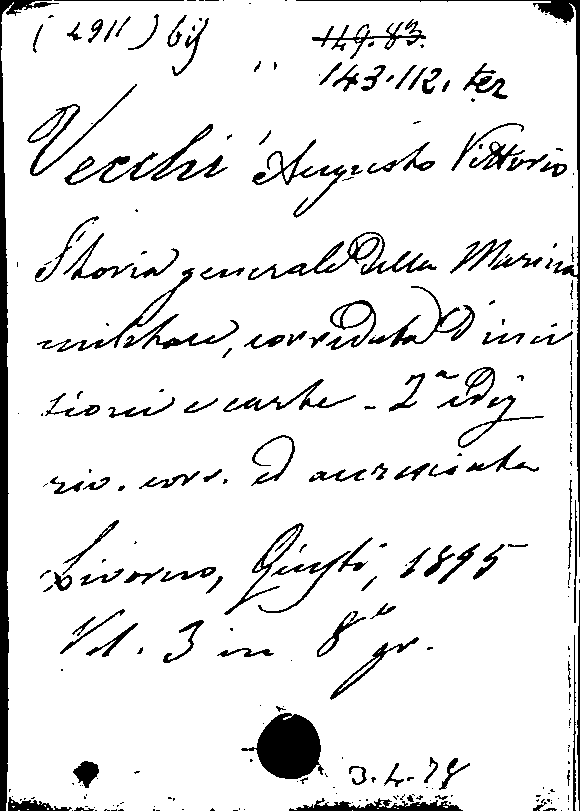 (2911) bis
149.83.
143.112. ter
Vecchi Augusto Vittorio
Storia generale della Marina
militare, corredata d'inci
sioni e carte - 2ª ediz
riv. corr. ed accresciuta
Livorno, Giusti, 1895
Vol. 3 in 8° gr.
3.4.78